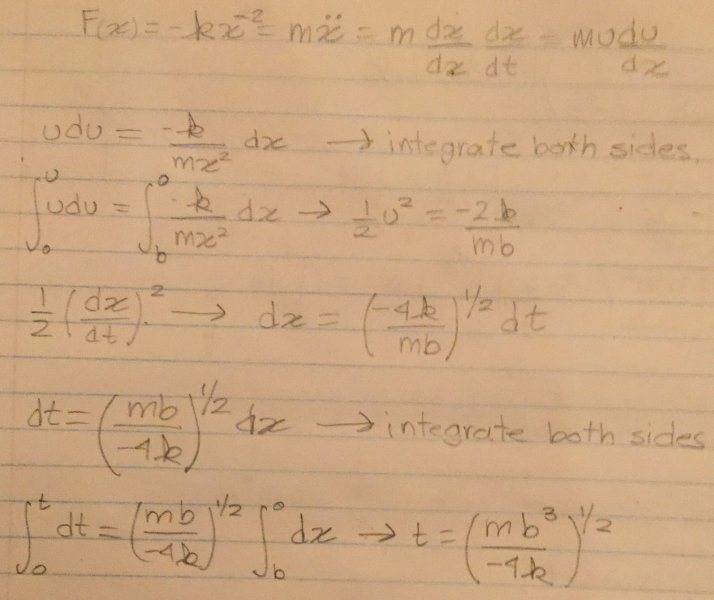 F(x) = -kx⁻² = mẍ = m dx/dx dx/dt = mvdv/dx
vdv = -k/mx² dx → integrate both sides.
∫₀ᵛ vdv = ∫_b⁰ -k/mx² dx → 1/2 v² = -2k/mb
1/2 (dx/dt)² → dx = (-4k/mb)^1/2 dt
dt = (mb/-4k)^1/2 dx → integrate both sides
∫₀ᵗ dt = (mb/-4k)^1/2 ∫_b⁰ dx → t = (mb³/-4k)^1/2